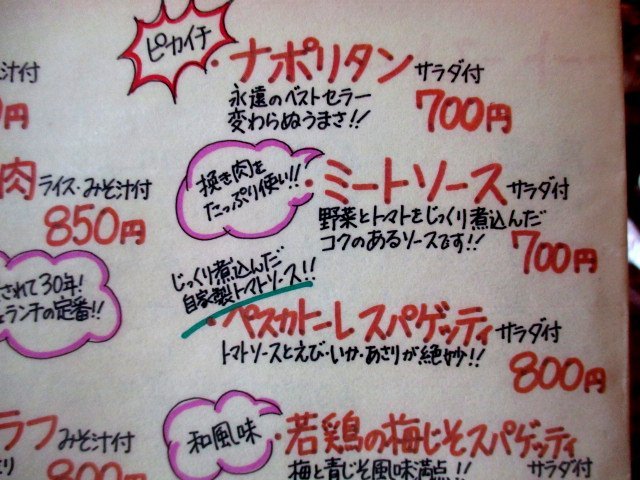 ピカイチ
・ナポリタン サラダ付
永遠のベストセラー
変わらぬうまさ!!
700円
挽き肉を
たっぷり使い!!
・ミートソース サラダ付
野菜とトマトをじっくり煮込んだ
コクのあるソースです!!
700円
じっくり煮込んだ
自家製トマトソース!!
・ペスカトーレスパゲッティ サラダ付
トマトソースとえび・いか・あさりが絶妙!!
800円
和風味
・若鶏の梅じそスパゲッティ
梅と青じそ風味満点!!
サラダ付
汁付
円
肉 ライス・みそ汁付
850円
されて30年!
ランチの定番!!
ラフ みそ汁付
800円